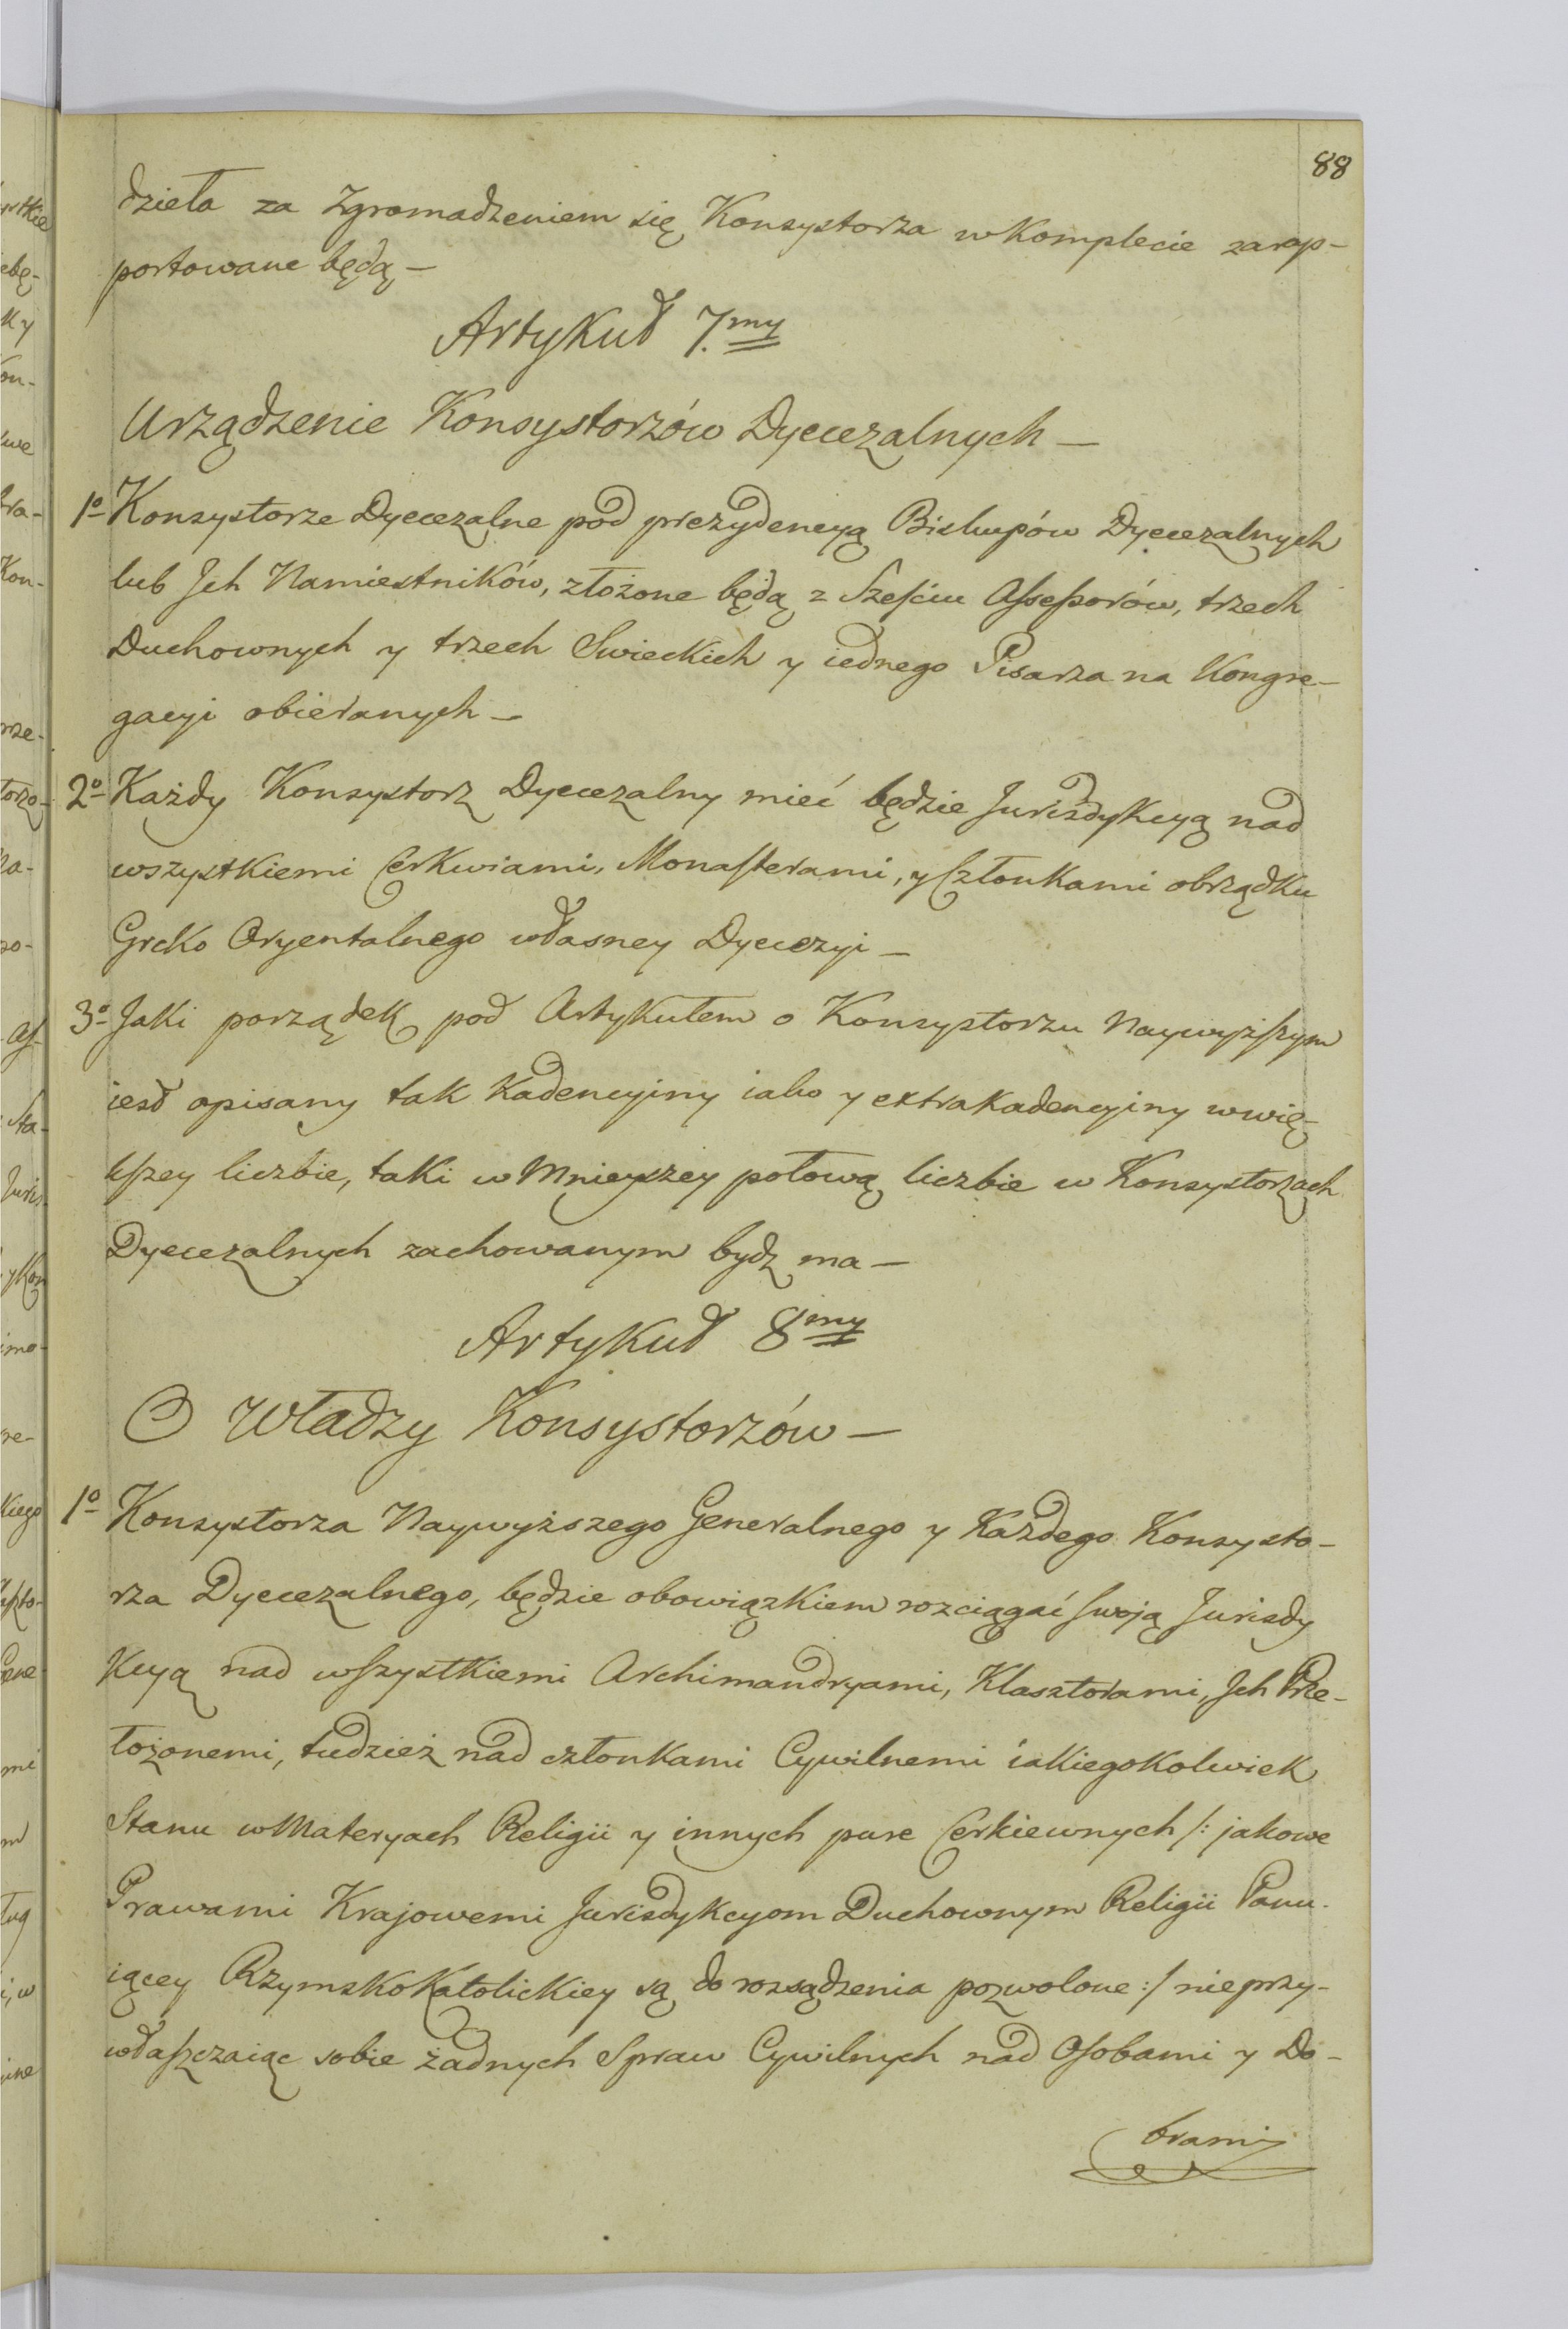 88
dzieła za Zgromadzeniem się Konsystorza w Komplecie zarap-
portowane będą —
Artykuł 7.my
Urządzenie Konsystorzów Dyecezalnych —
1o Konsystorze Dyecezalne pod prezydencyą Biskupów Dyecezalnych
lub Jch Namiestników, złożone będą z Sześciu Assessorów, trzech
Duchownych y trzech Swieckich y iednego Pisarza na Kongre-
gacyi obieranych —
2o Każdy Konsystorz Dyecezalny mieć będzie Jurisdykcyą nad
wszystkiemi Cerkwiami, Monasterami, y Członkami obrządku
Grcko Oryentalnego własney Dyecezyi —
3o Jaki porządek pod Artykułem o Konsystorzu Naywyższym
iest opisany tak Kadencyiny iako y extrakadencyiny w wię-
kszey liczbie, taki w Mnieyszey połową liczbie w Konsystorzach
Dyecezalnych zachowanym bydz ma —
Artykuł 8my
O Władzy Konsystorzów —
1o Konsystorza Naywyższego Generalnego y Każdego Konsysto-
rza Dyecezalnego, będzie obowiązkiem rozciągać swoją Jurisdy
kcyą nad wszystkiemi Archimandryami, Klasztorami, Jch Prze-
łożonemi, tudzież nad członkami Cywilnemi iakiegokolwiek
Stanu w Materyach Religii y innych pure Cerkiewnych /: jakowe
Prawami Krajowemi Jurisdykcyom Duchownym Religii Panu-
iącey Rzymsko Katolickiey są do rozsądzenia pozwolone :/ nie przy-
właszczaiąc sobie żadnych Spraw Cywilnych nad Osobami y Do-
brami